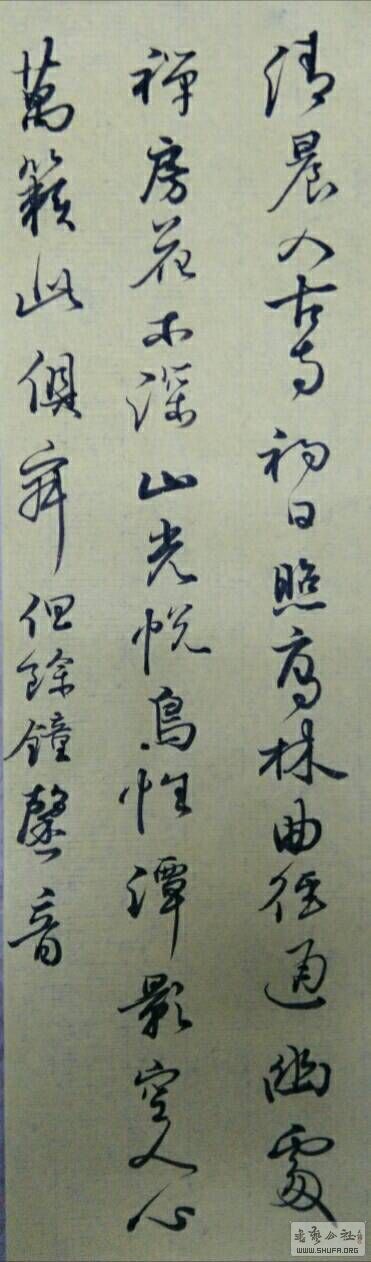 清晨入古寺初日照高林曲径通幽處
禪房花木深山光悦鳥性潭影空人心
萬籟此俱寂但餘鐘磬音
书艺公社
WWW.SHUFA.ORG